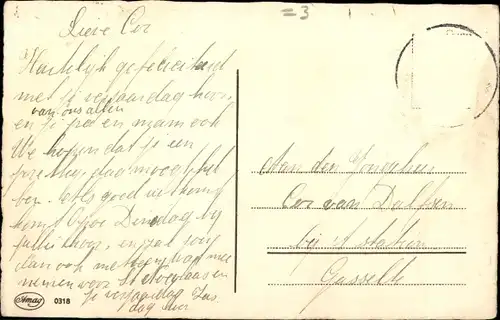 = 3
Lieve Cor
Hartelijk gefeliciteerd
met je verjaardag hoor
van ons allen
en je pa en mam ook
We hopen dat je een
prettige dag moogt hebben
ben. Als goed is komt
komt Opoe Dinsdag bij
jullie hoor, en zal
dan ook met een mee
nemen voor St Nicolaas en
je verjaardag
dag hoor
Aan den Jongeheer
Cor van Dalfsen
bij 't station
Gasselte
Amag 0318